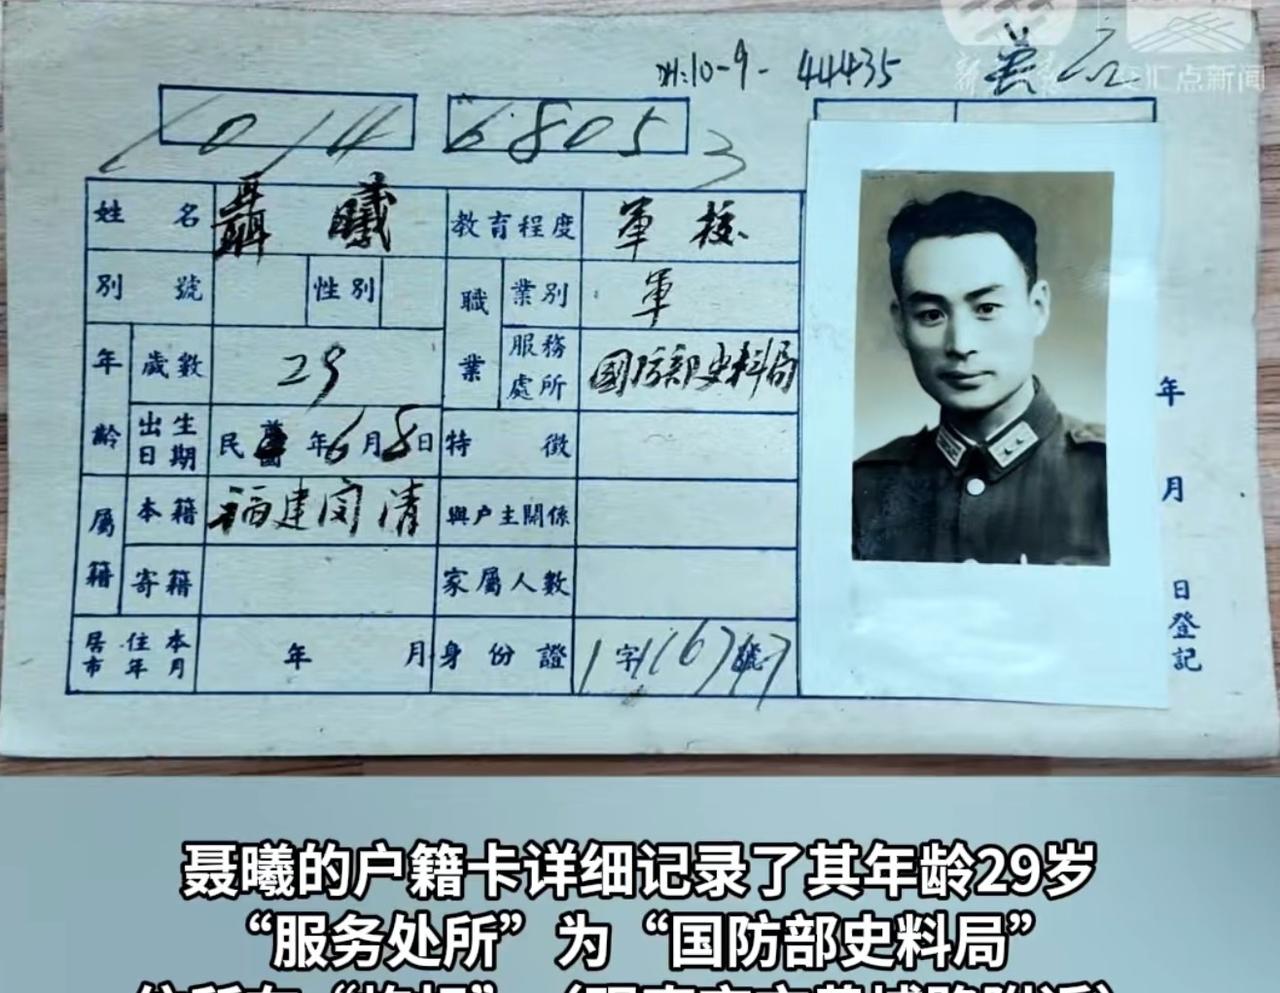 10-9- 44435
交汇点新闻
1014 68053
姓名 聶曦 教育程度 軍校
別號 性別 職業 業別 軍
年齡 歲數 29 服務處所 國防部史料局
出生日期 民國 年6月8日 特徵
屬籍 本籍 福建閩清 與户主關係
寄籍 家屬人數
居住本市年月 年 月 身份證 字 號
年 月 日登記
聂曦的户籍卡详细记录了其年龄29岁
“服务处所”为“国防部史料局”